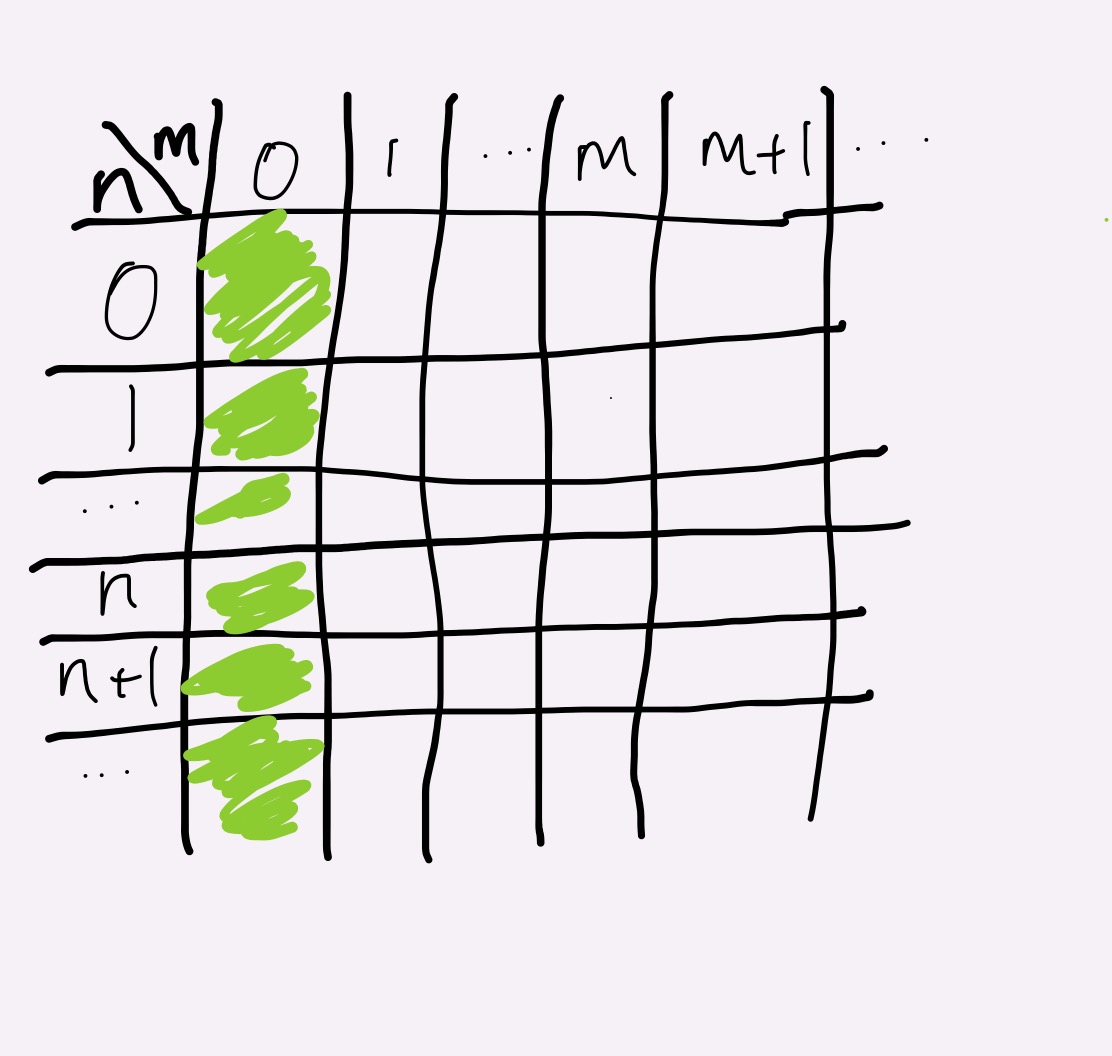 n \ m 0 1 ... m m+1 ...
0
1
...
n
n+1
...